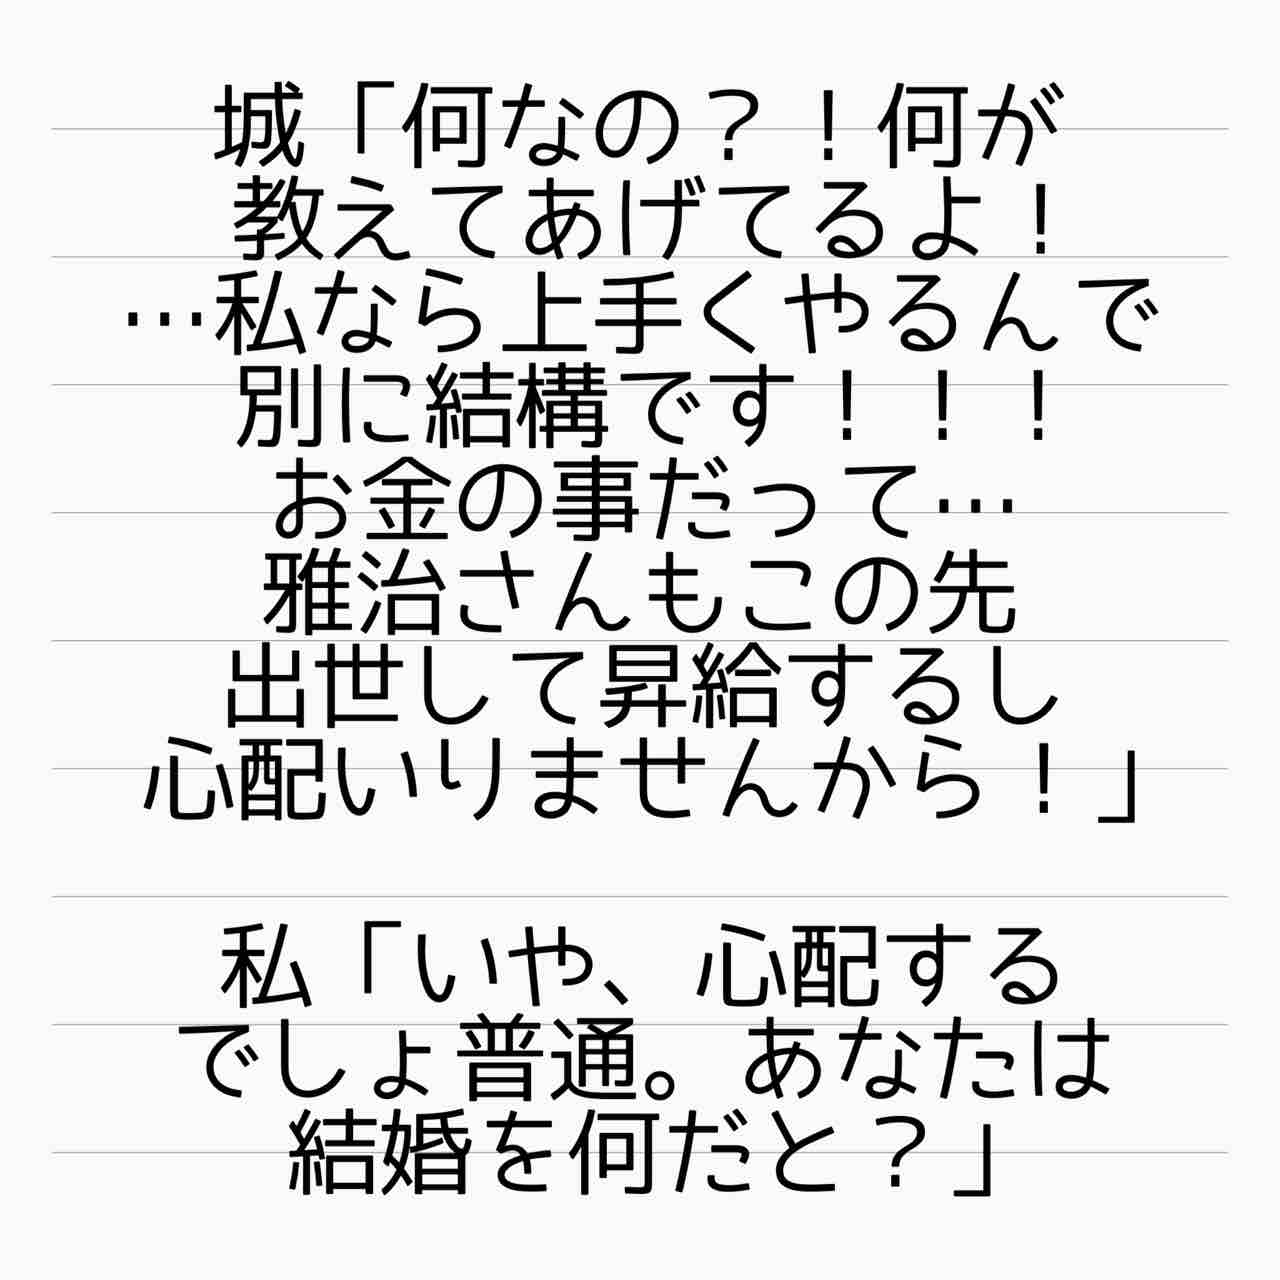 城「何なの？！何が
教えてあげてるよ！
…私なら上手くやるんで
別に結構です！！！
お金の事だって…
雅治さんもこの先
出世して昇給するし
心配いりませんから！」
私「いや、心配する
でしょ普通。あなたは
結婚を何だと？」